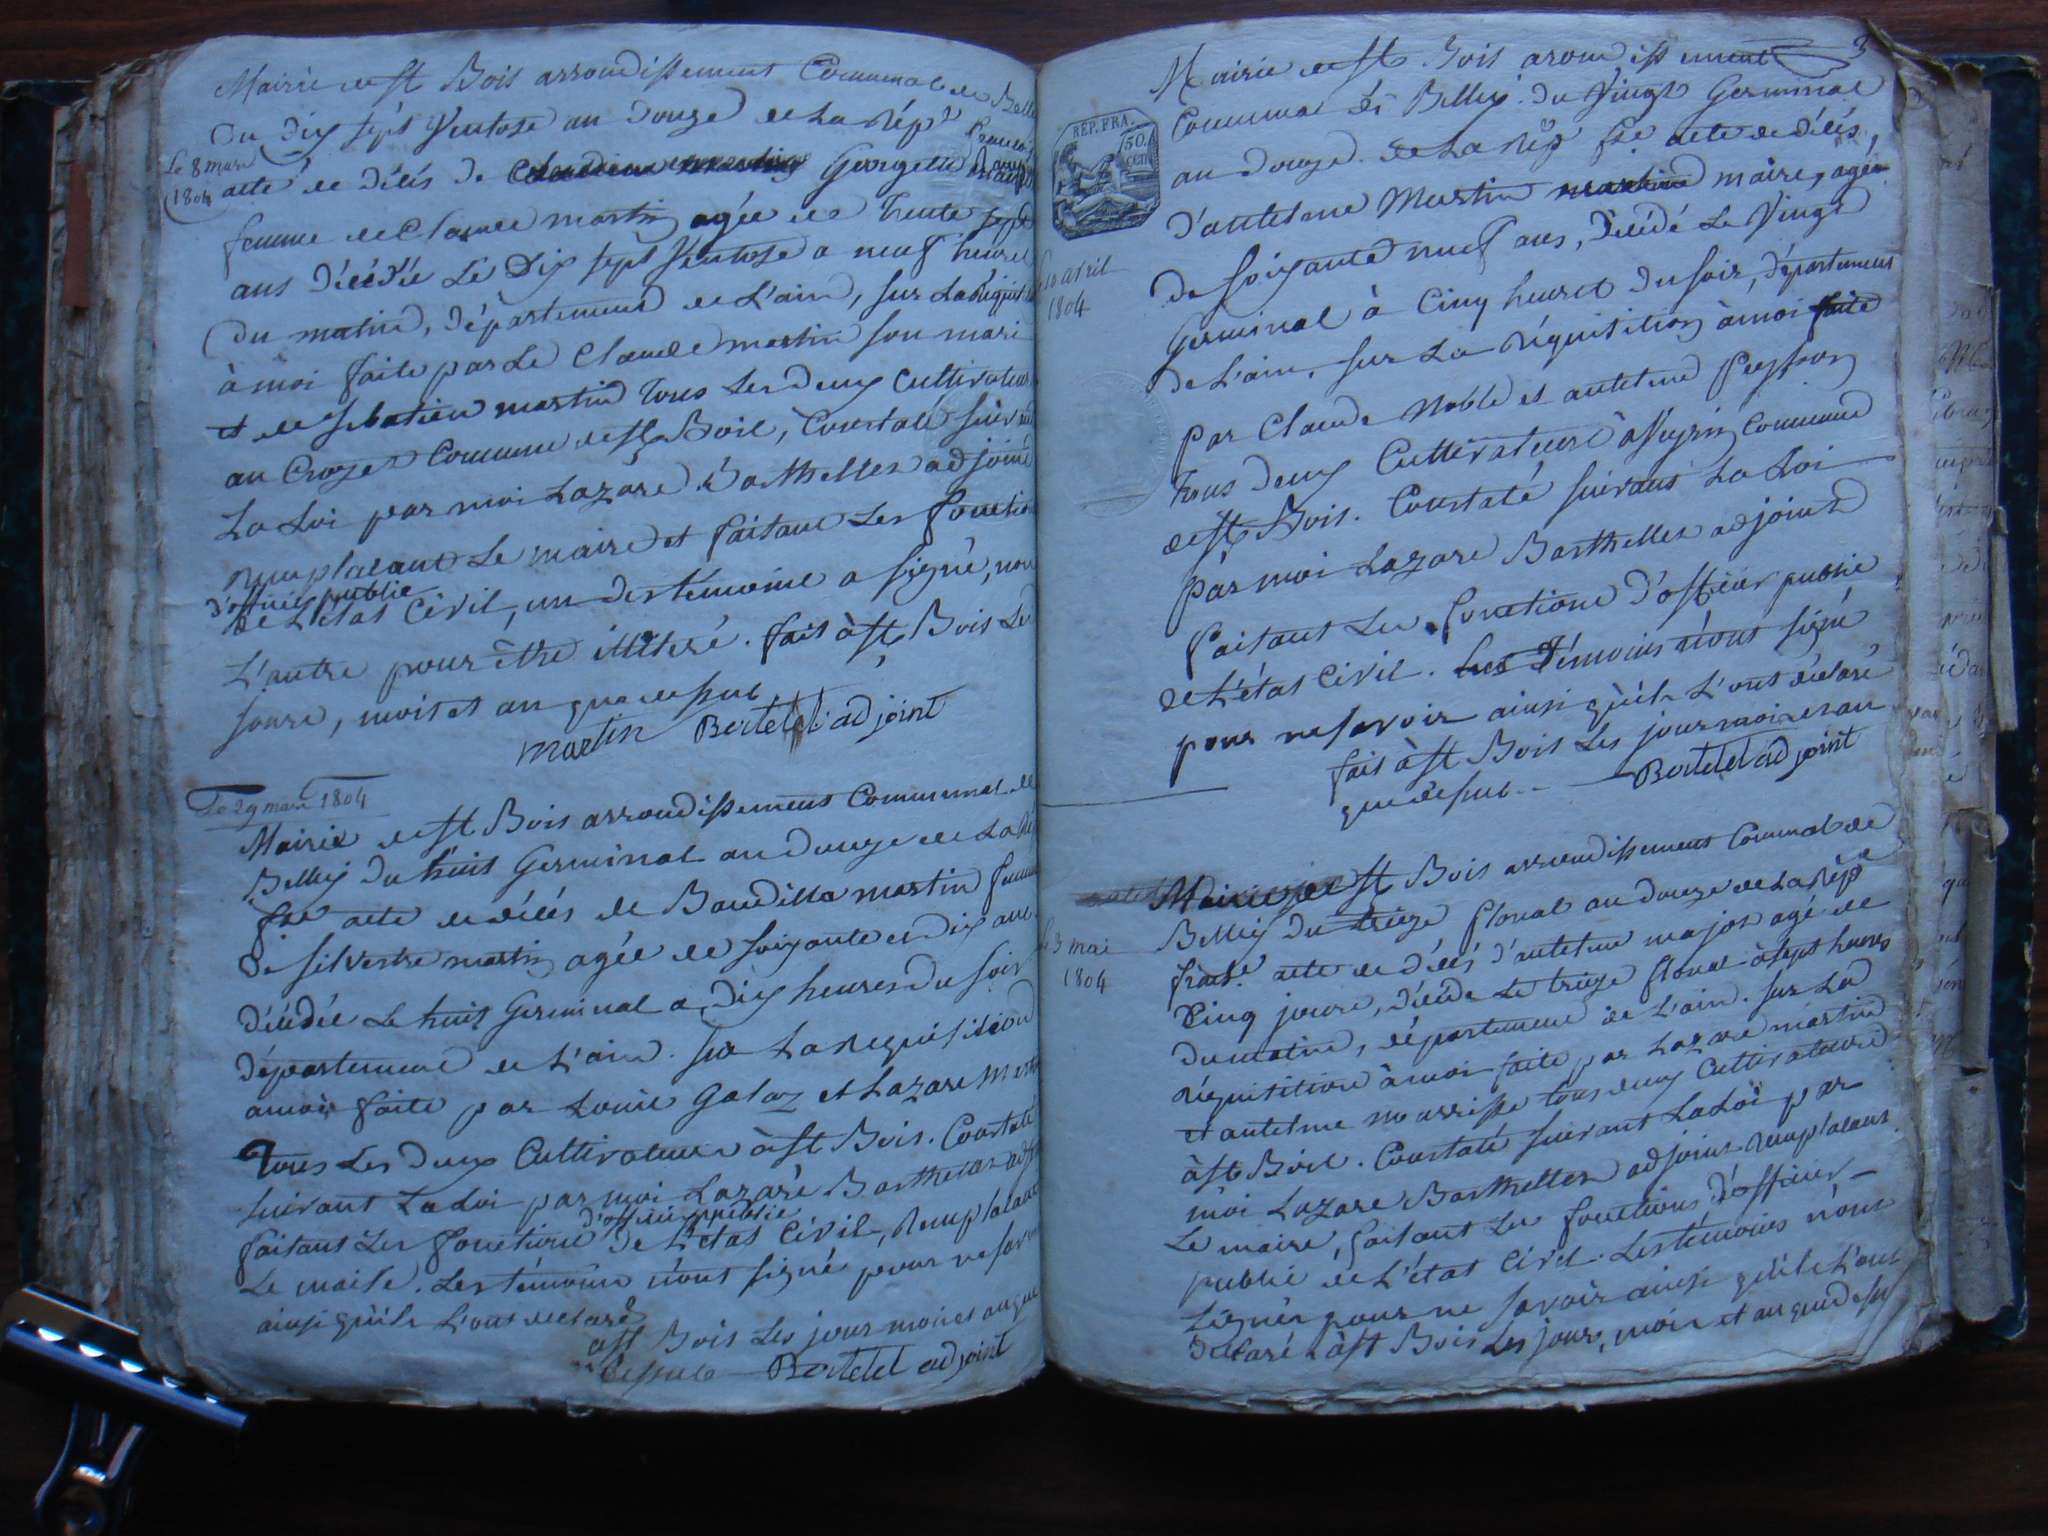 Mairie de St Bois arrondissement Communal de Belley
Du dix sept Ventose an douze de La Répe
Le 8 mars
1804
acte de décés de Georgette
femme de Claude martin agée de trente sept
ans décédée Le Dix sept Ventose a neuf heures
du matin, département de L'ain, sur La Réquisition
à moi faite par Le Claude martin son mari
et de sebatien martin tous Les deux Cultivateurs
au Crozet Commune de St Bois, Constaté suivant
La Loi par moi Lazare Barthellet adjoint
remplacant Le maire et faisant Les fonctions
d'officier public
de L'état Civil, un des témoins a signé, non
L'autre pour être illitéré. fait à St Bois Le
jours, mois et an que dessus
martin Bertelet adjoint
Le 29 mars 1804
Mairie de St Bois arrondissement Communal de
Belley du huit Germinal an douze de La Rép
fse acte de décés de Baudilla martin femme
De silvestre martin agée de soixante et dix ans
décédée Le huit Germinal a dix heures du soir
département de L'ain. sur La Requisition
a moi faite par Louis Galaz et Lazare Martin
Tous Les deux Cultivateurs à St Bois. Constaté
suivant La Loi par moi Lazare Barthellet adjoint
d'officier public
faisant Les fonctions de L'état Civil, Remplacant
Le maire. Les témoins n'ont signé pour ne savoir
ainsi qu'ils L'ont déclaré
a St Bois Les jour mois et an que
dessus Bertelet adjoint
3
Mairie de St Bois arondissement
Communal de Belley du Vingt Germinal
REP. FRA.
50
CEN
au douze de La Rép fse acte de décés,
d'antelme Martin maire, agée
10 avril
1804
de soixante neuf ans, décédé Le Vingt
Germinal à Cinq heures du soir, département
de L'ain, sur La réquisition à moi faite
par Claude Noble et antelme Peysson
tous deux Cultivateurs à Peyzin Commune
de St Bois. Constaté suivant La Loi
par moi Lazare Barthellet adjoint
faisant Les fonctions d'officier public
de L'état Civil. Les témoins n'ont signé
pour ne savoir ainsi qu'ils L'ont déclaré
fait à St Bois Les jour mois et an
que dessus Bertelet adjoint
Mairie de St Bois arrondissement Communal de
Belley du treize floreal an douze de La Répe
3 mai
1804
fraise. acte de décés d'antelme major agé de
Cinq jours, décédé Le treize floreal à sept heures
du matin, département de L'ain. sur La
réquisition à moi faite par Lazare martin
et antelme nourrisse tous deux Cultivateurs
à St Bois. Constaté suivant La Loi par
moi Lazare Barthellet adjoint remplacant
Le maire, faisant Les fonctions d'officier
public de L'état Civil. Les témoins n'ont
signer pour ne savoir ainsi qu'ils L'ont
déclaré à St Bois Les jours, mois et an que dessus